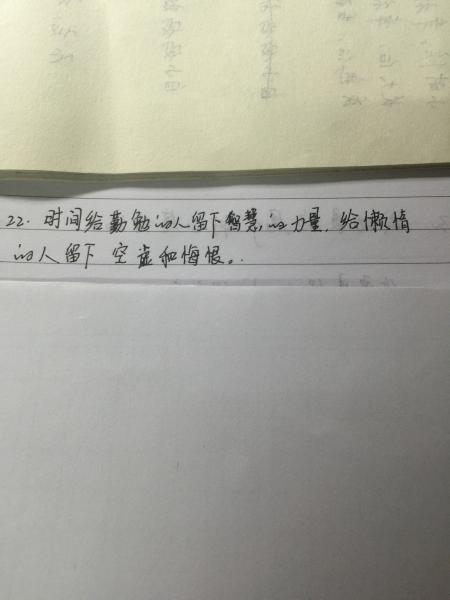 22. 时间给勤勉的人留下智慧的力量, 给懒惰
的人留下空虚和悔恨。